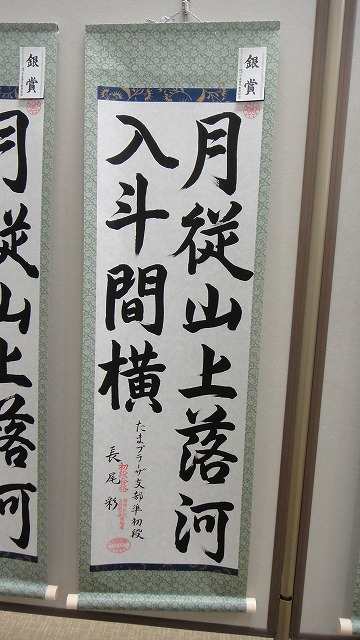 銀賞
月従山上落河
入斗間横
たまプラーザ支部準初段
長尾彩
初段合格
銀賞
月従山上落河